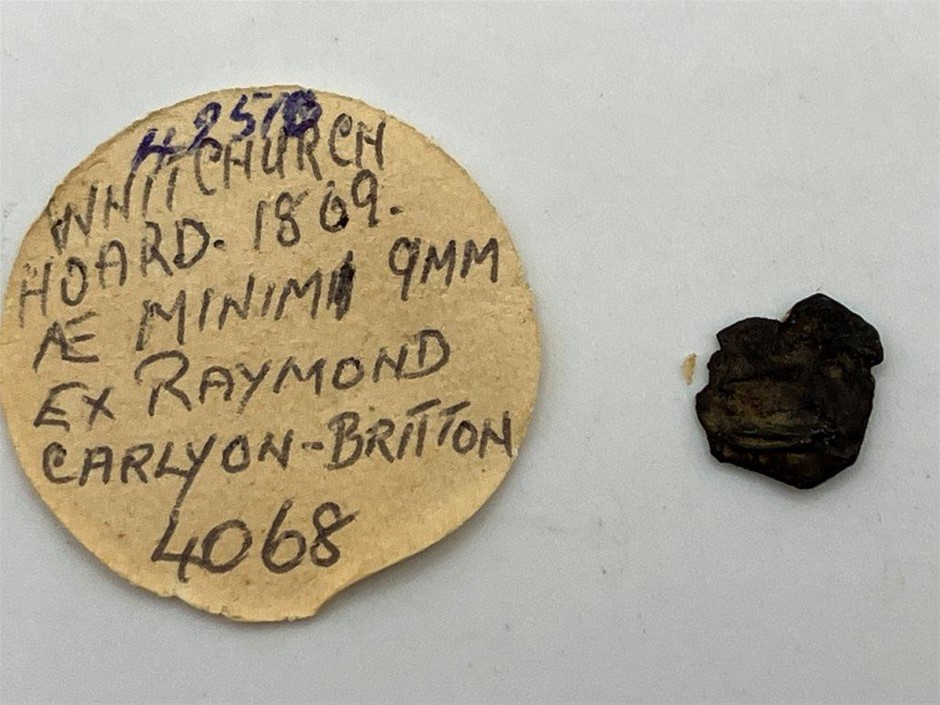 WHITCHURCH
HOARD. 1869.
Æ MINIMI 9MM
EX RAYMOND
CARLYON-BRITTON
4068